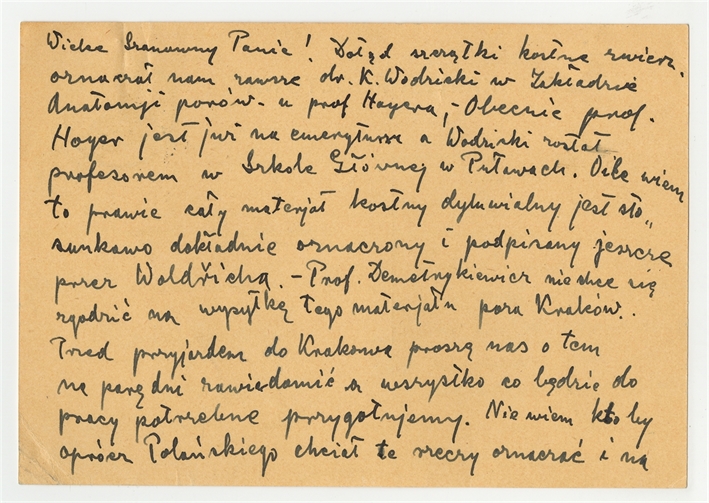 Wielce Szanowny Panie! Dotąd szczątki kostne zwierz.
oznaczał nam zawsze dr. K. Wodzicki w Zakładzie
Anatomji porów. u prof Hoyera, - Obecnie prof.
Hoyer jest już na emeryturze a Wodzicki został
profesorem w Szkole Głównej w Puławach. O ile wiem
to prawie cały materjał kostny dyluwialny jest sto„
sunkowo dokładnie oznaczony i podpisany jeszcze
przez Woldřicha. - Prof. Demetrykiewicz nie chce się
zgodzić na wysyłkę tego materjału poza Kraków..
Przed przyjazdem do Krakowa proszę nas o tem
na parę dni zawiadomić a wszystko co będzie do
pracy potrzebne przygotujemy. Nie wiem kto by
oprócz Polańskiego chciał te rzeczy oznaczać i na